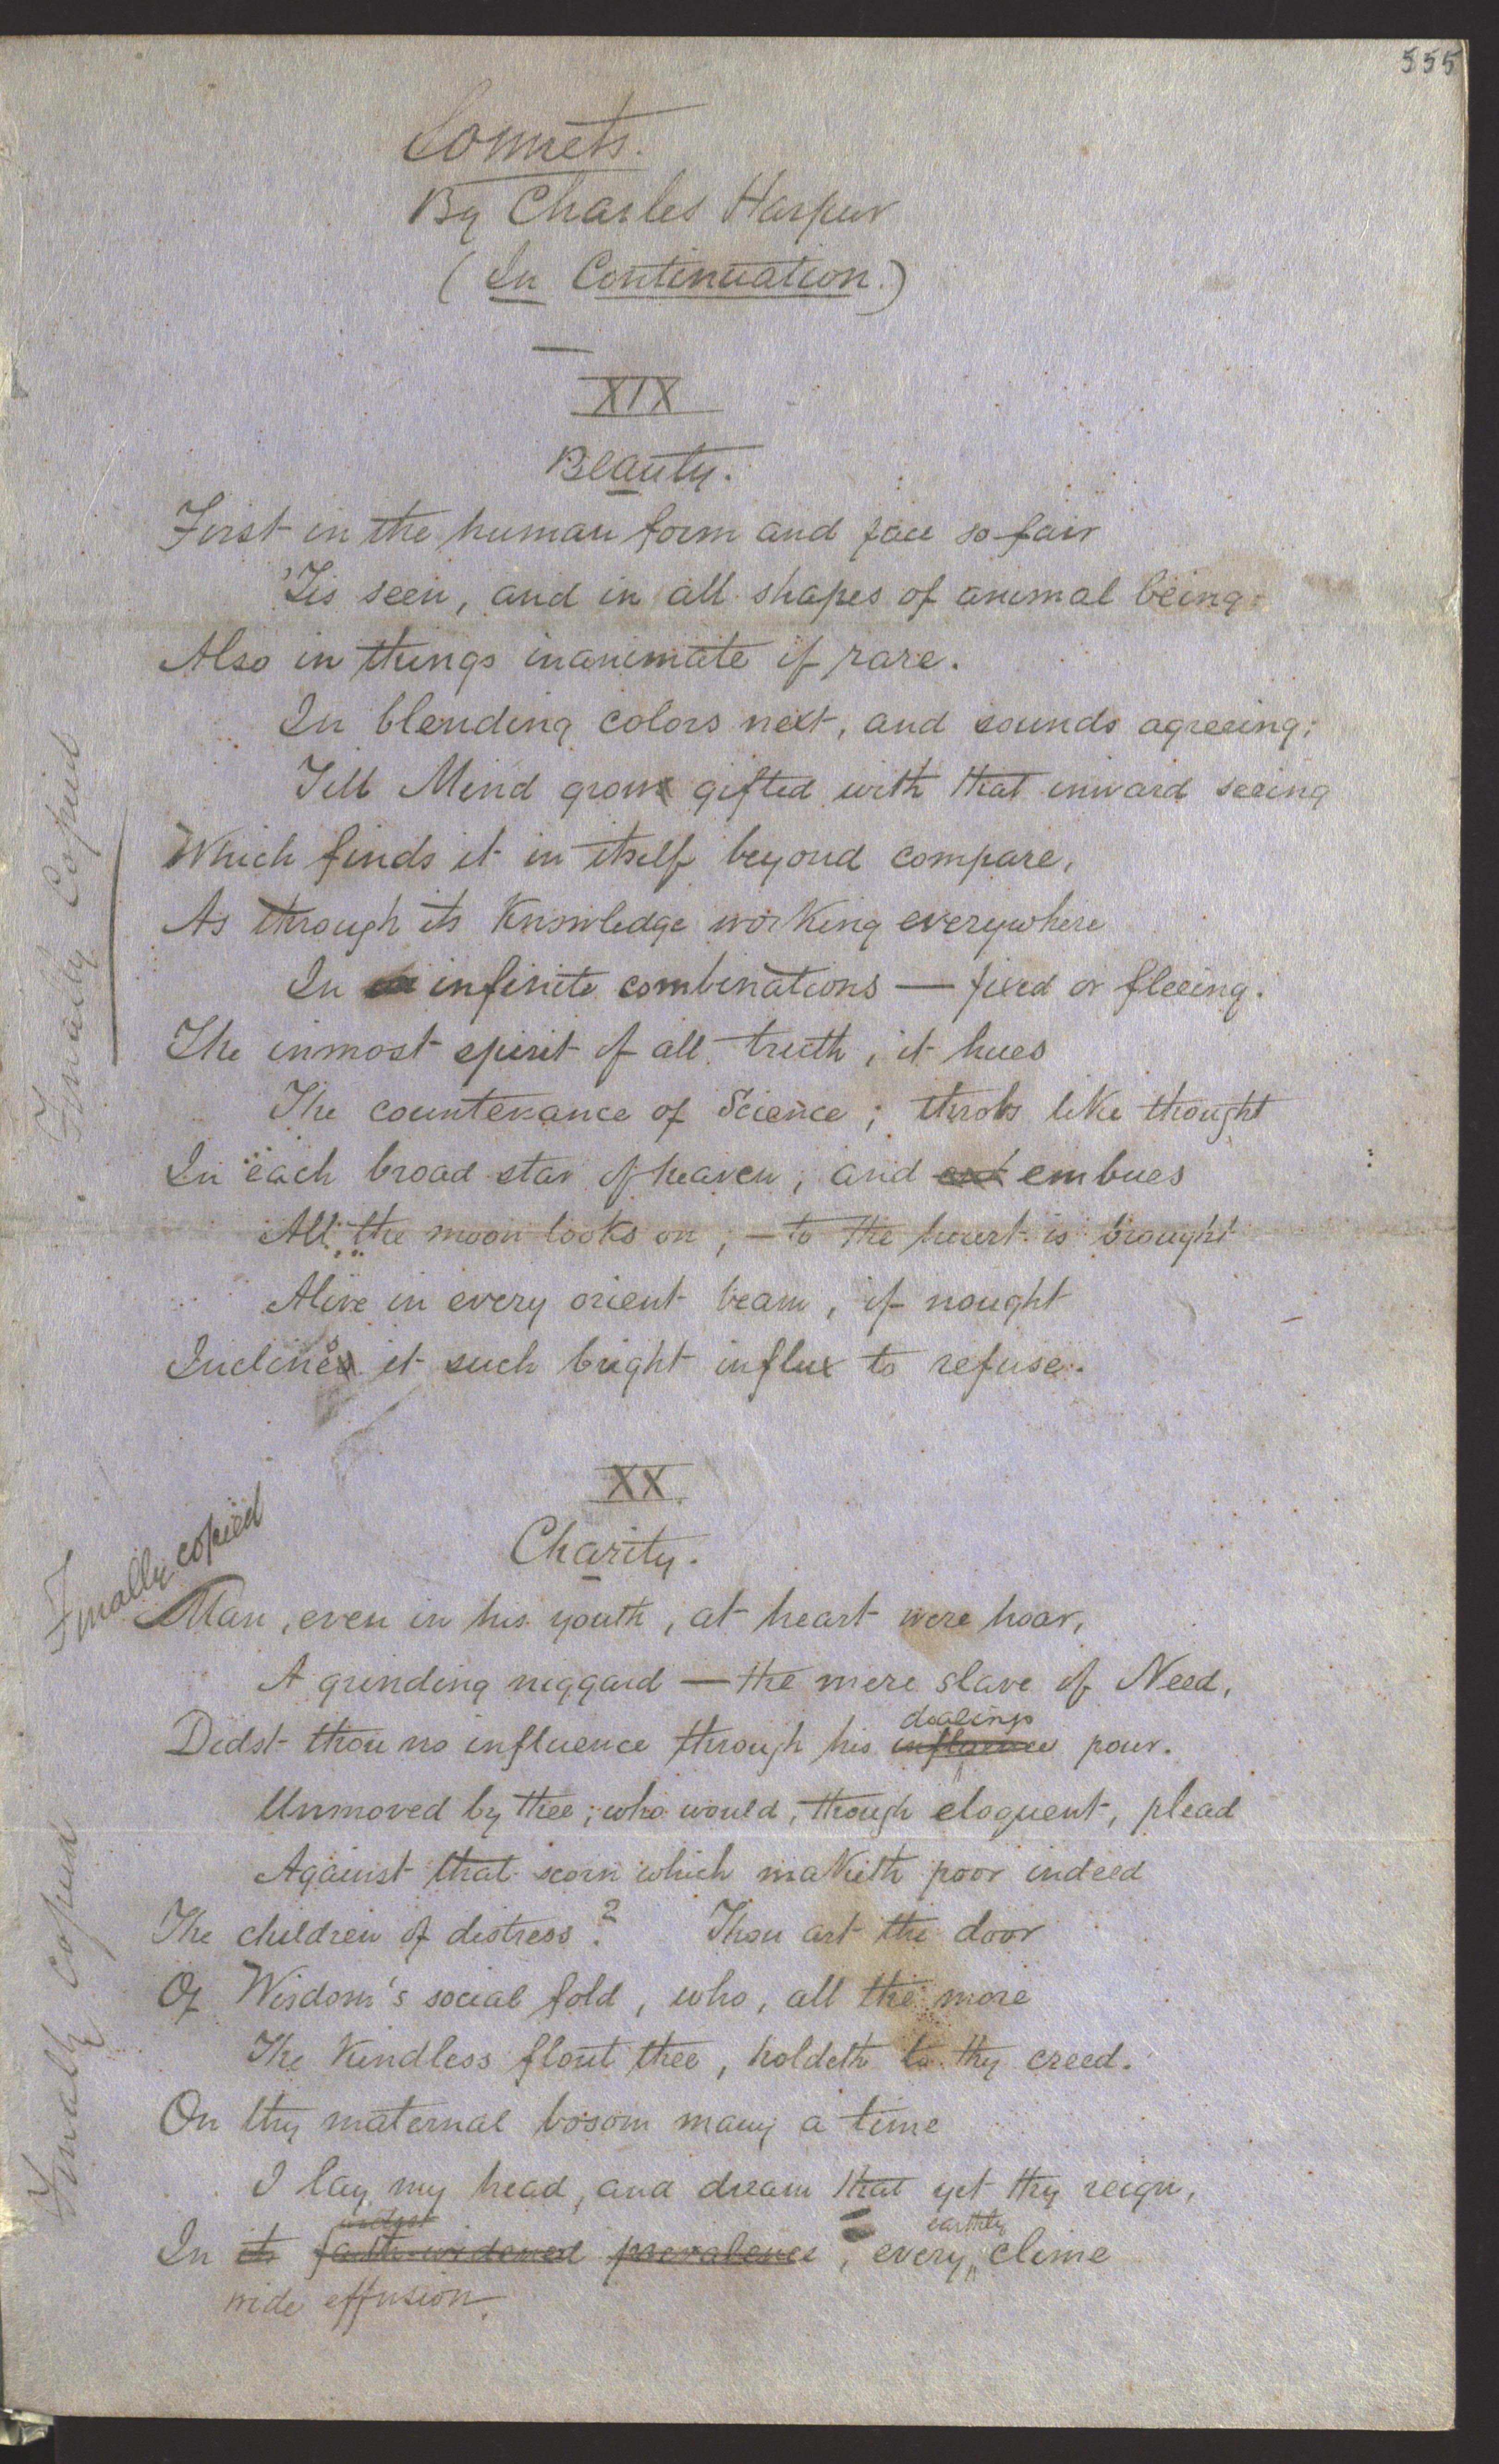 555
Sonnets.
By Charles Harpur
(In Continuation.)
XIX
Beauty.
First in the human form and face so fair
'Tis seen, and in all shapes of animal being
Also in things inanimate if rare.
In blending colors next, and sounds agreeing;
Till Mind grows gifted with that inward seeing
Which finds it in itself beyond compare,
As through its Knowledge working everywhere
In infinite combinations — fixed or fleeing.
The inmost spirit of all truth, it hues
The countenance of Science; throbs like thought
In each broad star of heaven, and embues
All the moon looks on; — to the heart is brought
Alive in every orient beam, if nought
Inclines it such bright influx to refuse.
Finally Copied
XX.
Charity.
Finally copied
Man, even in his youth, at heart were hoar,
A grinding niggard — the mere slave of Need,
dealings
Didst thou no influence through his influence pour.
Unmoved by thee; who would, though eloquent, plead
Against that scorn which maketh poor indeed
The children of distress? Thou art the door
Of Wisdom's social fold, who, all the more
The Kindless flout thee, holdeth to thy creed.
On thy maternal bosom many a time
I lay my head, and dream that yet thy reign,
widest earthly
In its faith-widened prevalence, every clime
wide effusion,
Finally copied